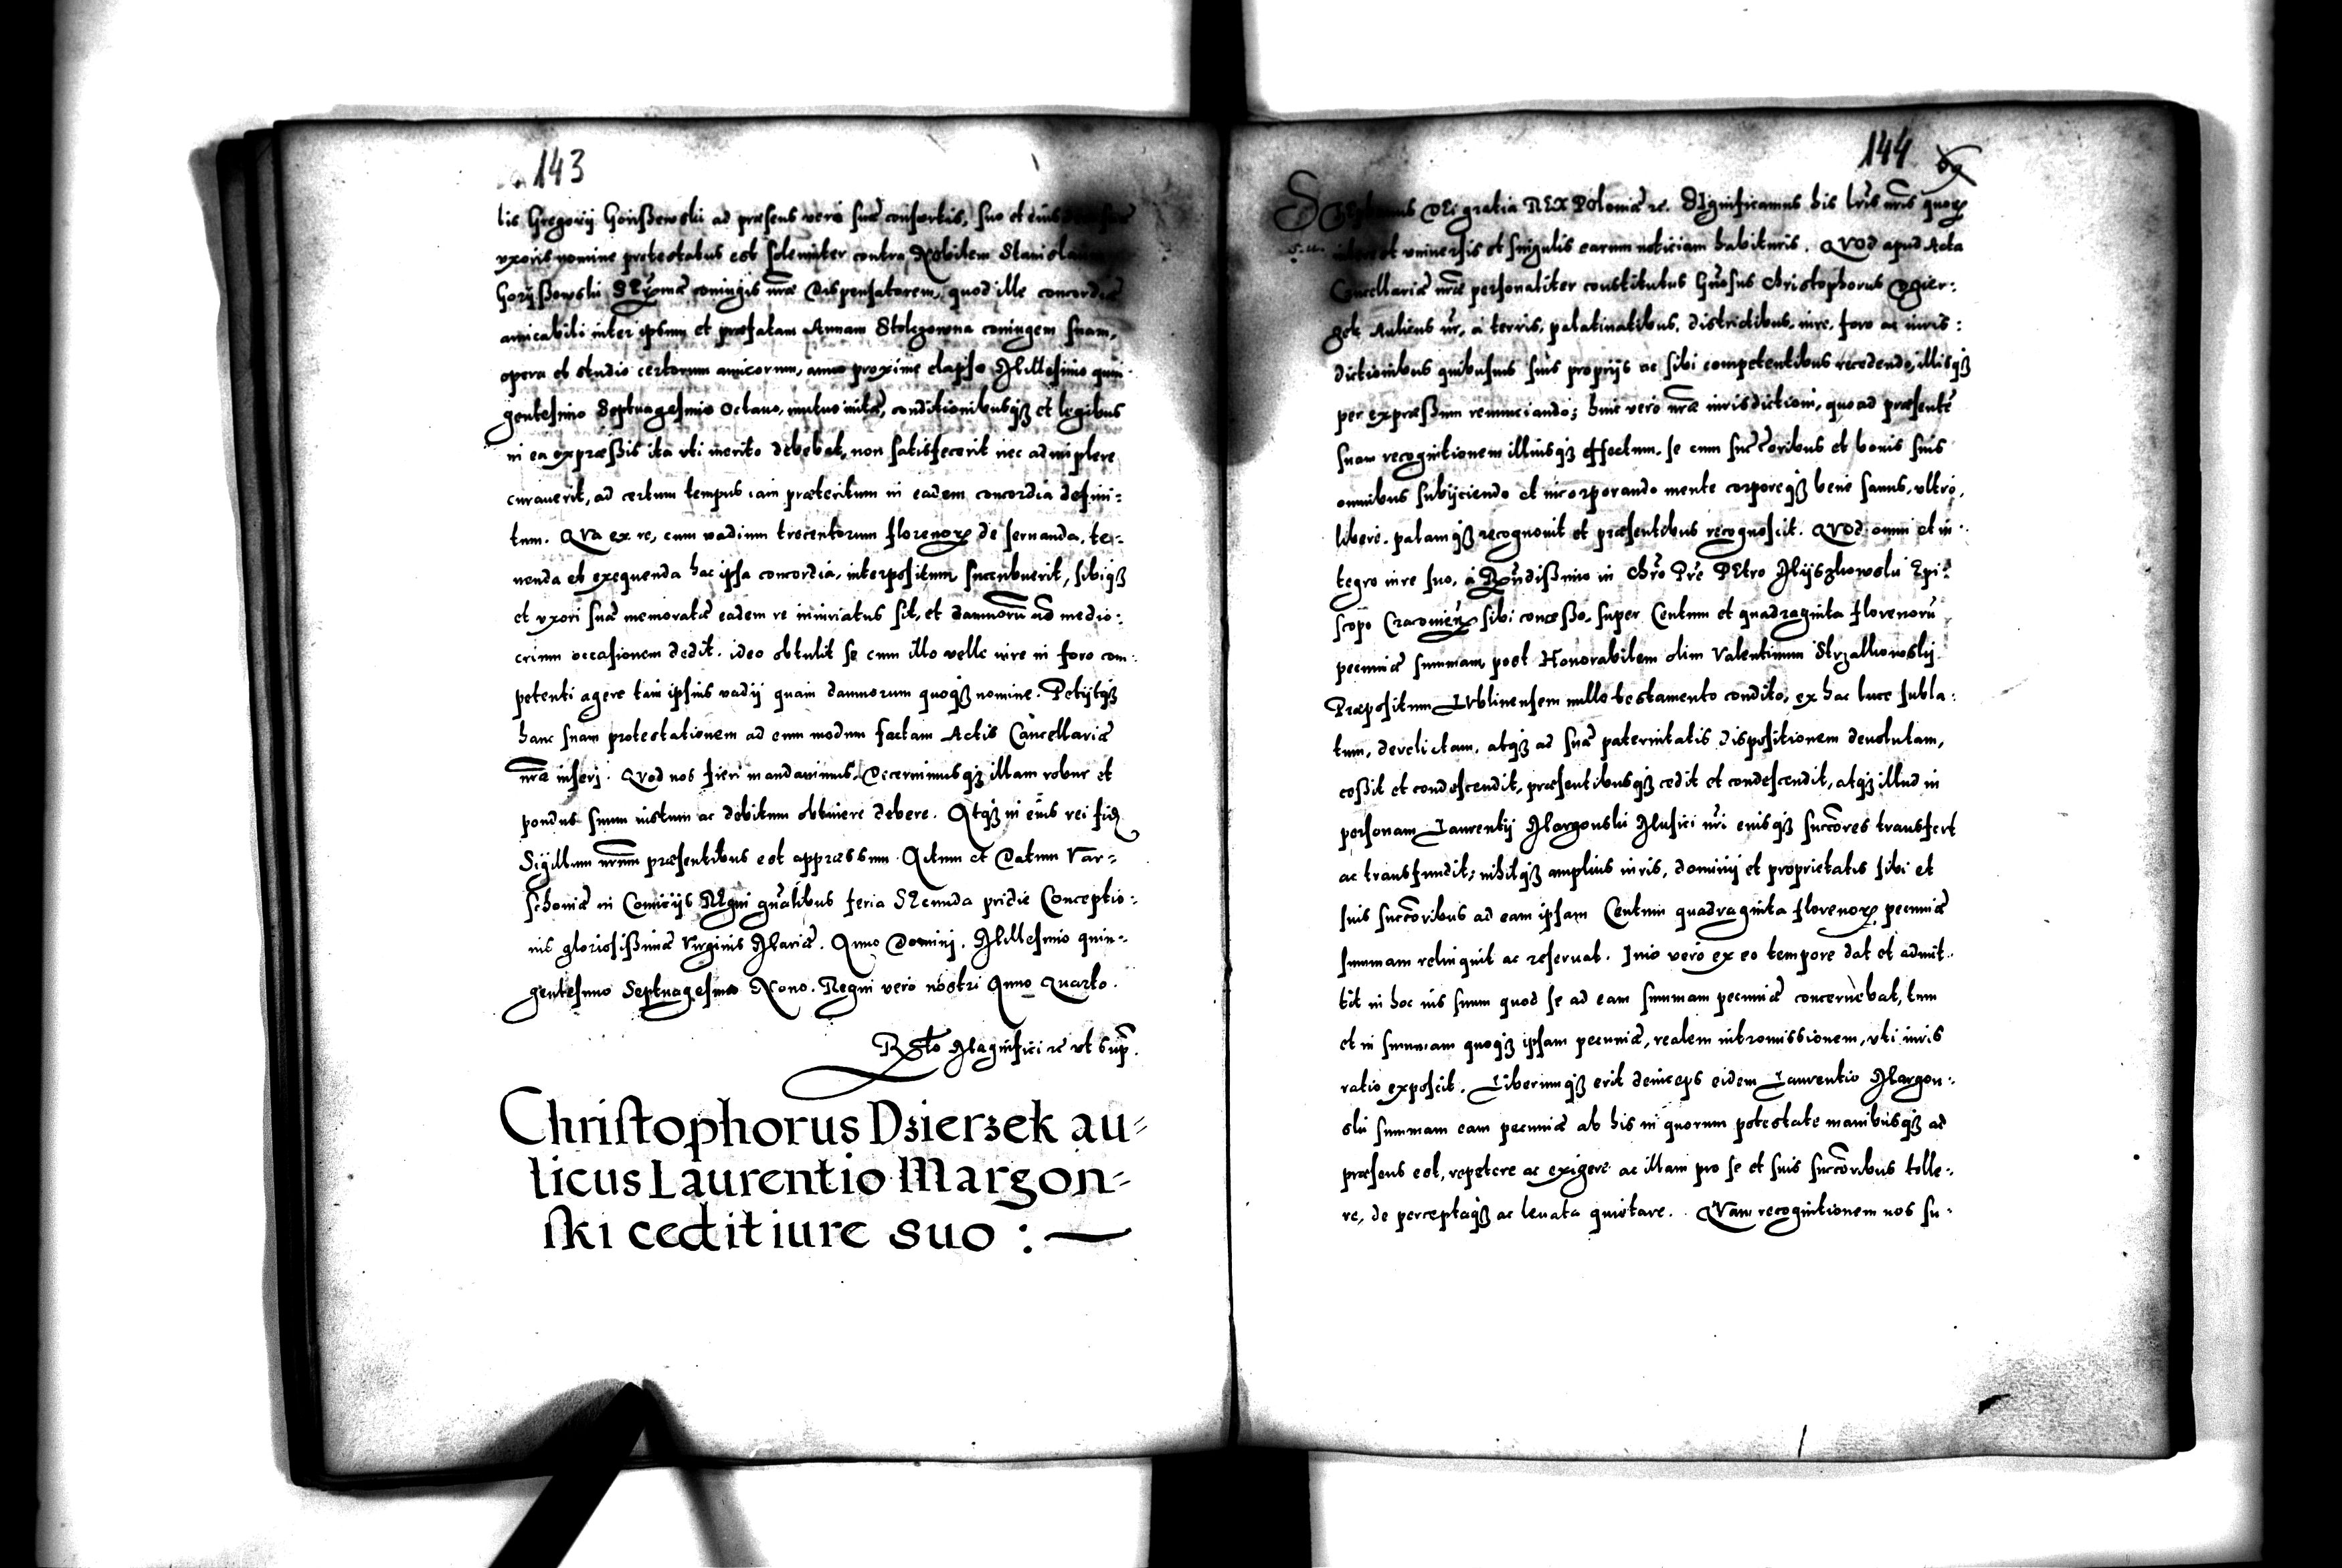 143
lis Gregorij Gorißewski ad præsens vero suæ consortis, suo et eius
vxoris nomine protestatus est solemniter contra Nobilem
Gorijßowski SEr͂mæ coniugis nr͂æ Dispensatorem, quod ille concordiæ
amicabili inter ipsum et præfatam Annam Stolczowna coniugem suam,
opera et studio certorum amicorum, anno proxime elapso Millesimo quin-
gentesimo Septuagesimo Octauo, mutuo initæ, conditionibusqȝ et legibus
in ea expræßis ita vti merito debebat, non satisfecerit nec adimplere
curauerit, ad certum tempus iam præteritum in eadem concordia defini:
tum. QVa ex re, cum vadium trecentorum florenoꝝ de seruanda, te:
nenda et exequenda hac ipsa concordia, interpositum sucubuerit, sibiqȝ
et vxori suæ memoratæ eadem re iniuriatus sit, et damnorū ad medio:
crium occasionem dedit. ideo obtulit se cum illo velle iure in foro com:
petenti agere tam ipsius vadij quam damnorum quoqȝ nomine. Petijtqȝ
hanc suam protestationem ad eum modum factam Actis Cancellariæ
nr͂æ inserj. QVod nos fieri mandauimus, Decernimusqȝ illam robur et
pondus suum iustum ac debitum obtinere debere. Atqȝ in eius rei fidē
Sigillum nr͂um præsentibus est appræssum. Actum et Datum Var:
schouiæ in Comicijs REgni gn͂alibus feria SEcunda pridie Conceptio:
nis gloriosißimæ Virginis Mariæ. Anno Domini. Millesimo quin:
gentesimo Septuagesimo Nono. Regni vero nostri Anno Quarto.
Rela͂to Magnifici ꝛc vt sup͂.
Christophorus Dzierzek au-
licus Laurentio Margon-
ski cedit iure suo :
144
DEi gratia REX Poloniæ ꝛc. SIgnificamus his lr͂is nr͂is quoꝝ
interest vniuersis et singulis earum noticiam habituris. QVOd apud Acta
Cancellariæ nr͂æ personaliter constitutus Gn͂osus Christophorus Dzier:
zek Aulicus nr͂, a terris, palatinatibus, districtibus, iure, foro ac iuris:
dictionibus quibusuis suis proprijs ac sibi competentibus recedendo, illisqȝ
per expræßum renunciando; huic vero nr͂æ iurisdictioni, quoad præsentē
suam recognitionem illiusqȝ effectum. se cum suc͂coribus et bonis suis
omnibus subijciendo et incorporando mente corporeqȝ bene sanus, vltro,
libere, palamqȝ recognouit et præsentibus recognoscit. QVOd omni et in:
tegro iure suo, a Rn͂dißimo in Chr͂o Pr͂e PEtro Mijszkowski Epi:
scopo Cracouien͂ sibi conceßo. super Centum et quadraginta florenorū
pecuniæ summam post Honorabilem olim Valentinum Strzalkowskij
Præpositum LVblinensem nullo testamento condito, ex hac luce subla:
tum, derelictam, atqȝ ad suæ paternitatis dispositionem deuolutam,
ceßit et condescendit, præsentibusqȝ cedit et condescendit, atqȝ illud in
personam Laurentij Margonski Musici nr͂i eiusqȝ suc͂cores transfert
ac transfundit; nihilqȝ amplius iuris, dominij et proprietatis sibi et
suis suc͂coribus ad eam ipsam Centum quadraginta florenoꝝ pecuniæ
summam relinquit ac reseruat. Imo vero ex eo tempore dat et admit:
tit in hoc ius suum quod se ad eam summam pecuniæ concernebat, tum
et in summam quoqȝ ipsam pecuniæ, realem intromissionem, vti iuris
ratio exposcit. Liberumqȝ erit deinceps eidem Laurentio Margon:
ski summam eam pecuniæ ab his in quorum potestate manibusqȝ ad
præsens est, repetere ac exigere ac illam pro se et suis suc͂coribus tolle:
re, de perceptaqȝ ac leuata quietare. QVam recognitionem nos su: